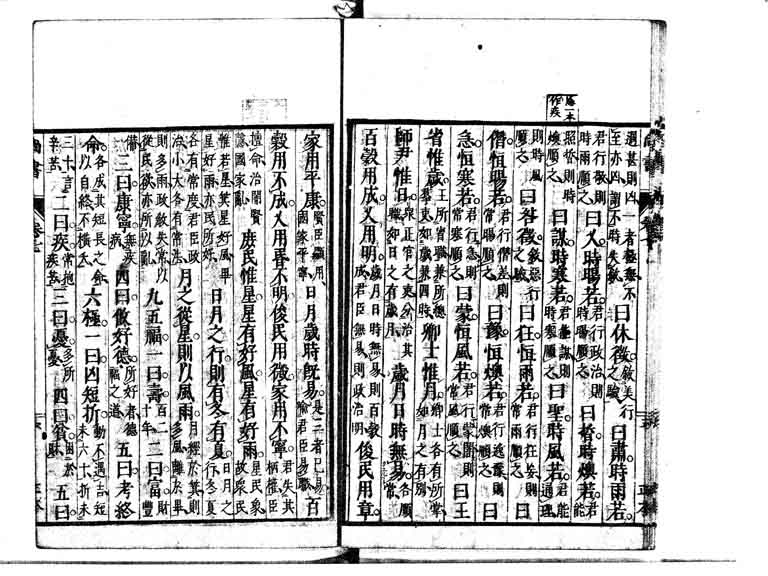 一本
作疾
過甚則凶一者極無不至亦凶謂不時失敘曰休徵敘美行之驗曰肅時雨若
君行敬則時雨順之曰乂時暘若君行政治則時暘順之曰晢時燠若君能
照晢則時燠順之曰謀時寒若君能謀則時寒順之曰聖時風若君能通理
則時風順之曰咎徵敘惡行之驗曰狂恒雨若君行狂妄則常雨順之曰
僭恒暘若君行僭差則常暘順之曰豫恒燠若君行逸豫則常燠順之曰
急恒寒若君行急則常寒順之曰蒙恒風若君行蒙闇則常風順之曰王
省惟歲王所省職兼所總羣吏如歲兼四時卿士惟月卿士各有所掌如月之有別
師尹惟日衆正官之吏分治其職如日之有歲月歲月日時無易各順常
百穀用成乂用明歲月日時無易則百穀成君臣無易則政治明俊民用章
家用平康賢臣顯用國家平寧日月歲時既易是三者已易喻君臣易職百
穀用不成乂用昏不明俊民用微家用不寧君失其柄權臣
擅命治闇賢隱國家亂庶民惟星星有好風星有好雨星民象故衆民
惟若星箕星好風畢星好雨亦民所好日月之行則有冬有夏日月之行冬夏
各有常度君臣政治小大各有常法月之從星則以風雨月經於箕則多風離於畢
則多雨政教失常以從民欲亦所以亂九五福一曰壽百二十年二曰富財豐
備三曰康寧無疾病四曰攸好德所好者德福之道五曰考終
命各成其短長之命以自終不橫夭六極一曰凶短折動不遇吉短未六十折未
三十言辛苦二曰疾常抱疾苦三曰憂多所憂四曰貧困於財五曰